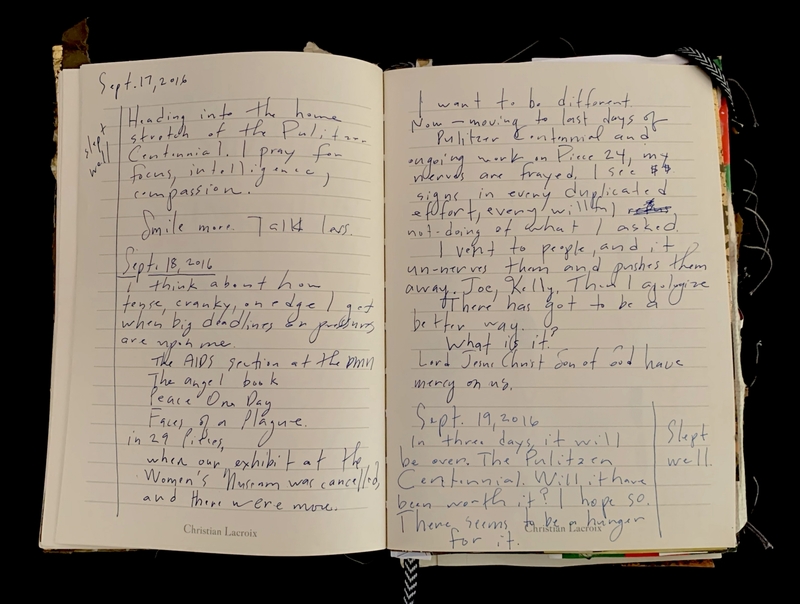 Sept. 17, 2016
slept well
Heading into the home
stretch of the Pulitzer
Centennial. I pray for
focus, intelligence,
compassion.
Smile more. Talk less.
Sept. 18, 2016
I think about how
tense, cranky, on edge I get
when big deadlines or pressures
are upon me.
The AIDS section at the DMN
The angel book
Peace One Day
Faces of a Plague.
in 29 Cities,
when our exhibit at the
Women's Museum was cancelled,
and there were more.
Christian Lacroix
I want to be different.
Now — moving to last days of
Pulitzer Centennial and
ongoing work on Piece 24, my
nerves are frayed. I see $$
signs in every duplicated
effort, every willful
not-doing of what I asked.
I vent to people, and it
un-nerves them and pushes them
away. Joe, Kelly. Then I apologize
There has got to be a
better way.
What is it?
Lord Jesus Christ Son of God have
mercy on us.
Sept. 19, 2016
In three days, it will
be over. The Pulitzer
Centennial. Will it have
been worth it? I hope so.
There seems to be a hunger
for it.
Slept
well.
Christian Lacroix